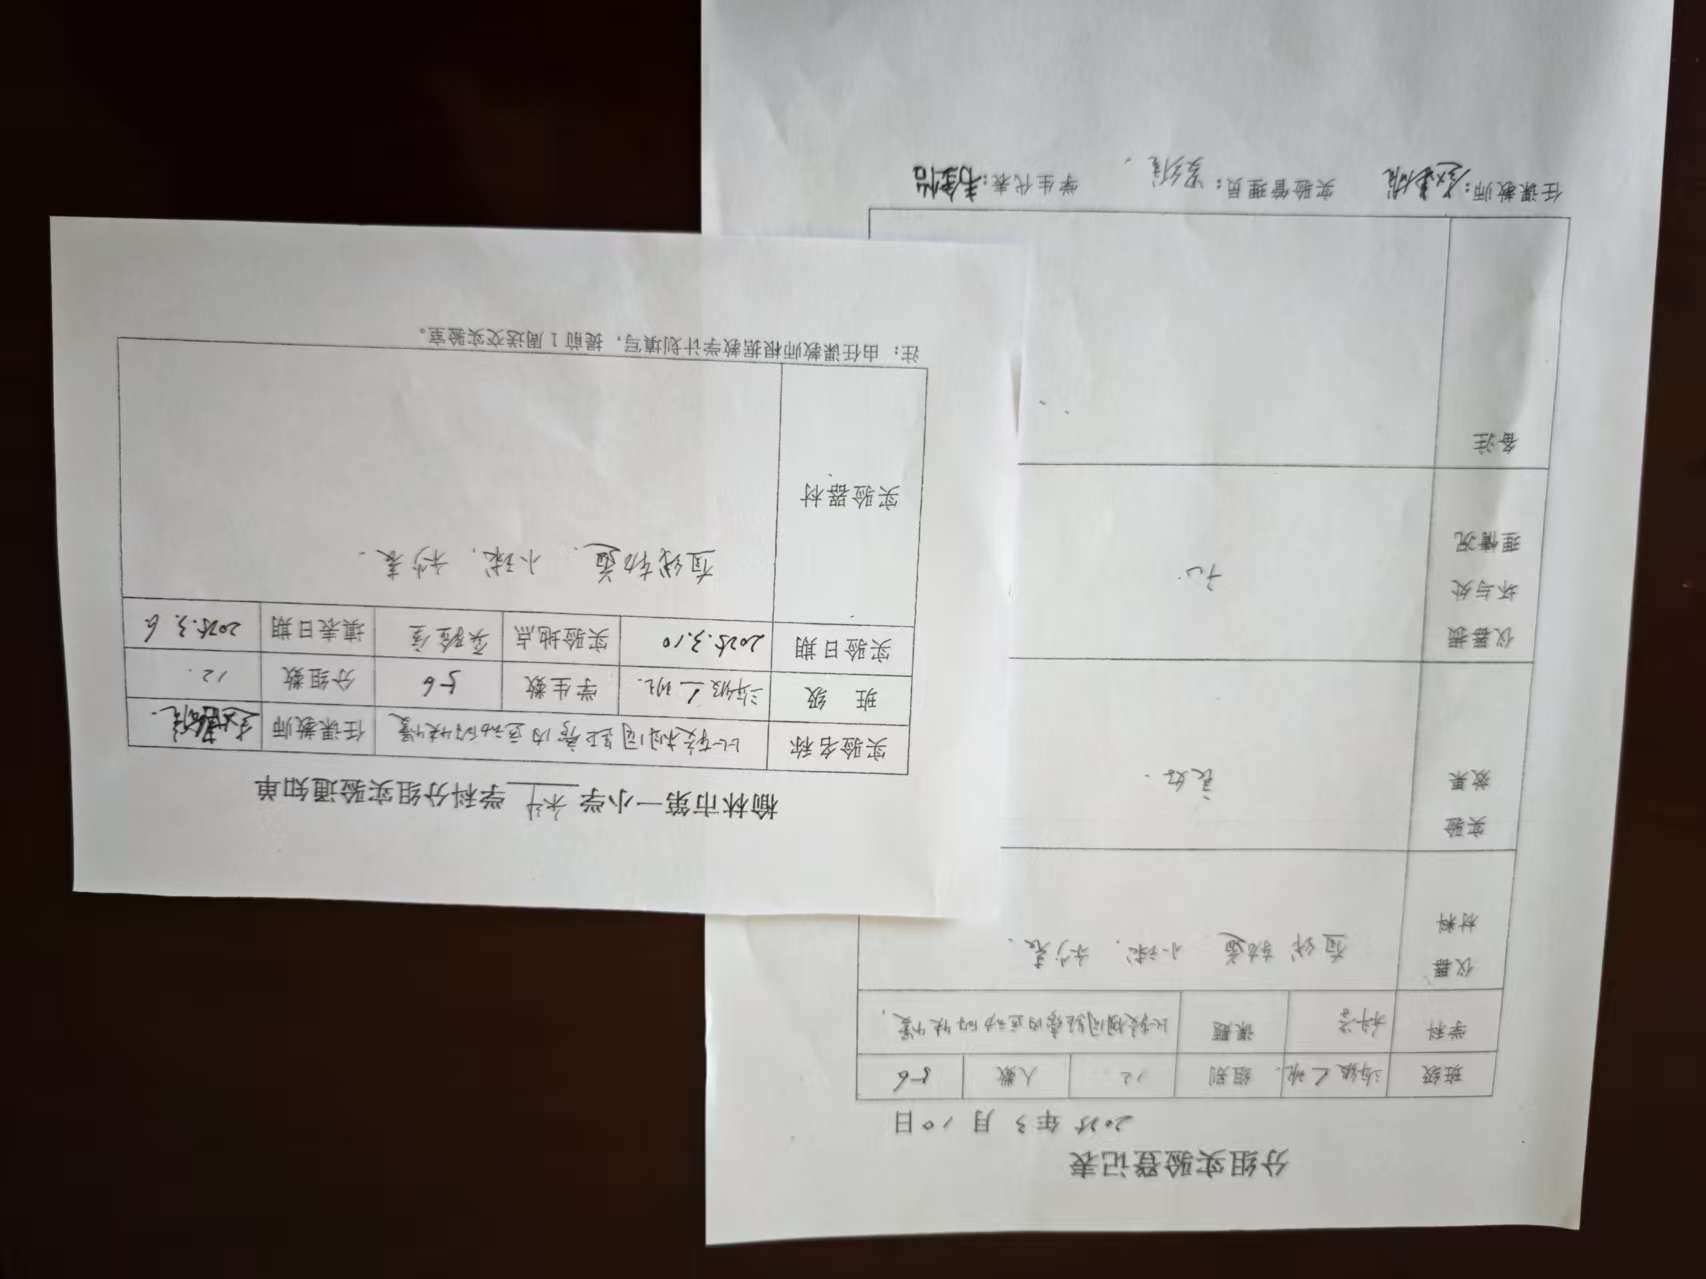 榆林市第一小学 科学 学科分组实验通知单
实验名称 比较相同距离内运动的快慢 任课教师
班 级 三年级 班 学生数 56 分组数 12
实验日期 2025.3.10 实验地点 实验室 填表日期 2025.3.6
实验器材 直线轨道、小球、秒表.
注：由任课教师根据教学计划填写，提前1周送交实验室。
分组实验登记表
2025 年 3 月 10 日
班级 三年级 班 组别 12 人数 56
学科 科学 课题 比较相同距离内运动的快慢.
仪器
材料
直线轨道 小球、秒表.
实验
效果
良好.
仪器损
坏与处
理情况
无.
备注
任课教师： 实验管理员： 学生代表：